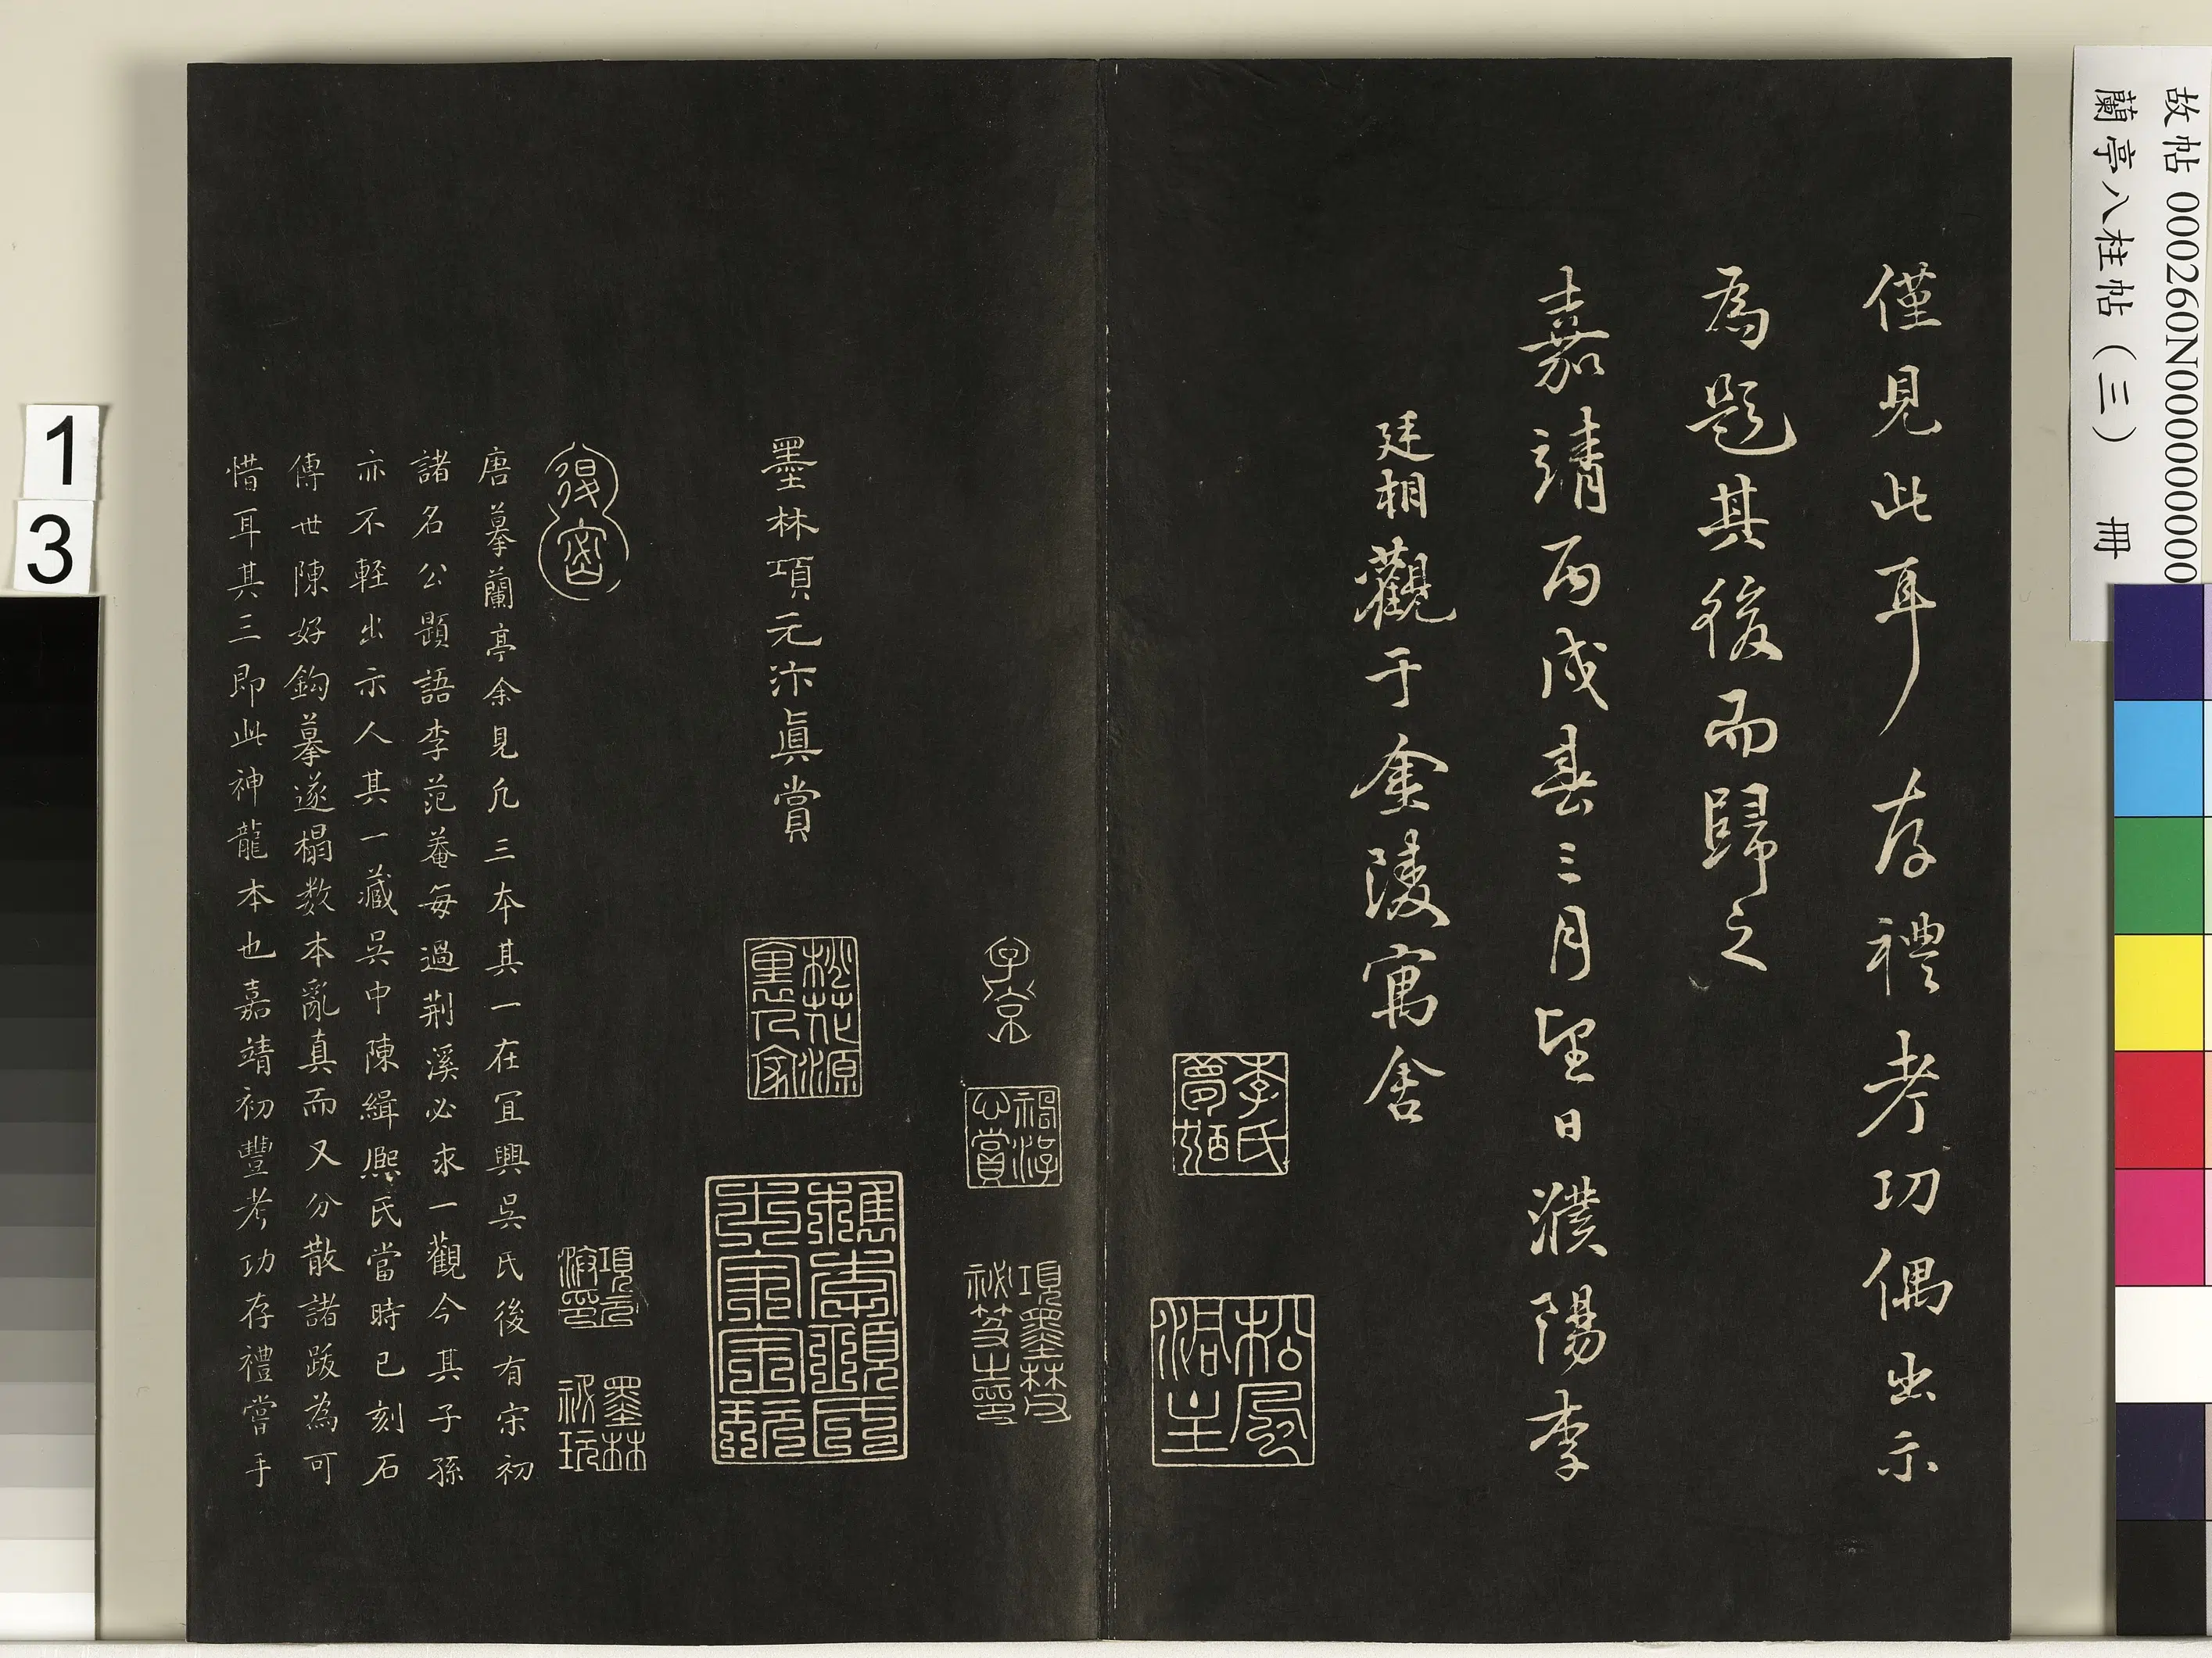 故帖 000260N000000000
蘭亭八柱帖（三） 冊
僅見此耳存禮考功偶出示
為題其後而歸之
嘉靖丙戌春三月望日濮陽李
廷相觀于金陵寓舍
李氏
松風
子京
項墨林父
祕笈之印
墨林項元汴真賞
樵李項氏
士家寶玩
項元
汴印
墨林
祕玩
唐摹蘭亭余見凢三本其一在冝興吳氏後有宋初
諸名公題語李范菴每過荆溪必求一觀今其子孫
亦不輕出示人其一藏吳中陳緝熈氏當時已刻石
傳世陳好鈎摹遂榻数本亂真而又分散諸跋為可
惜耳其三即此神龍本也嘉靖初豐考功存禮嘗手
1
3